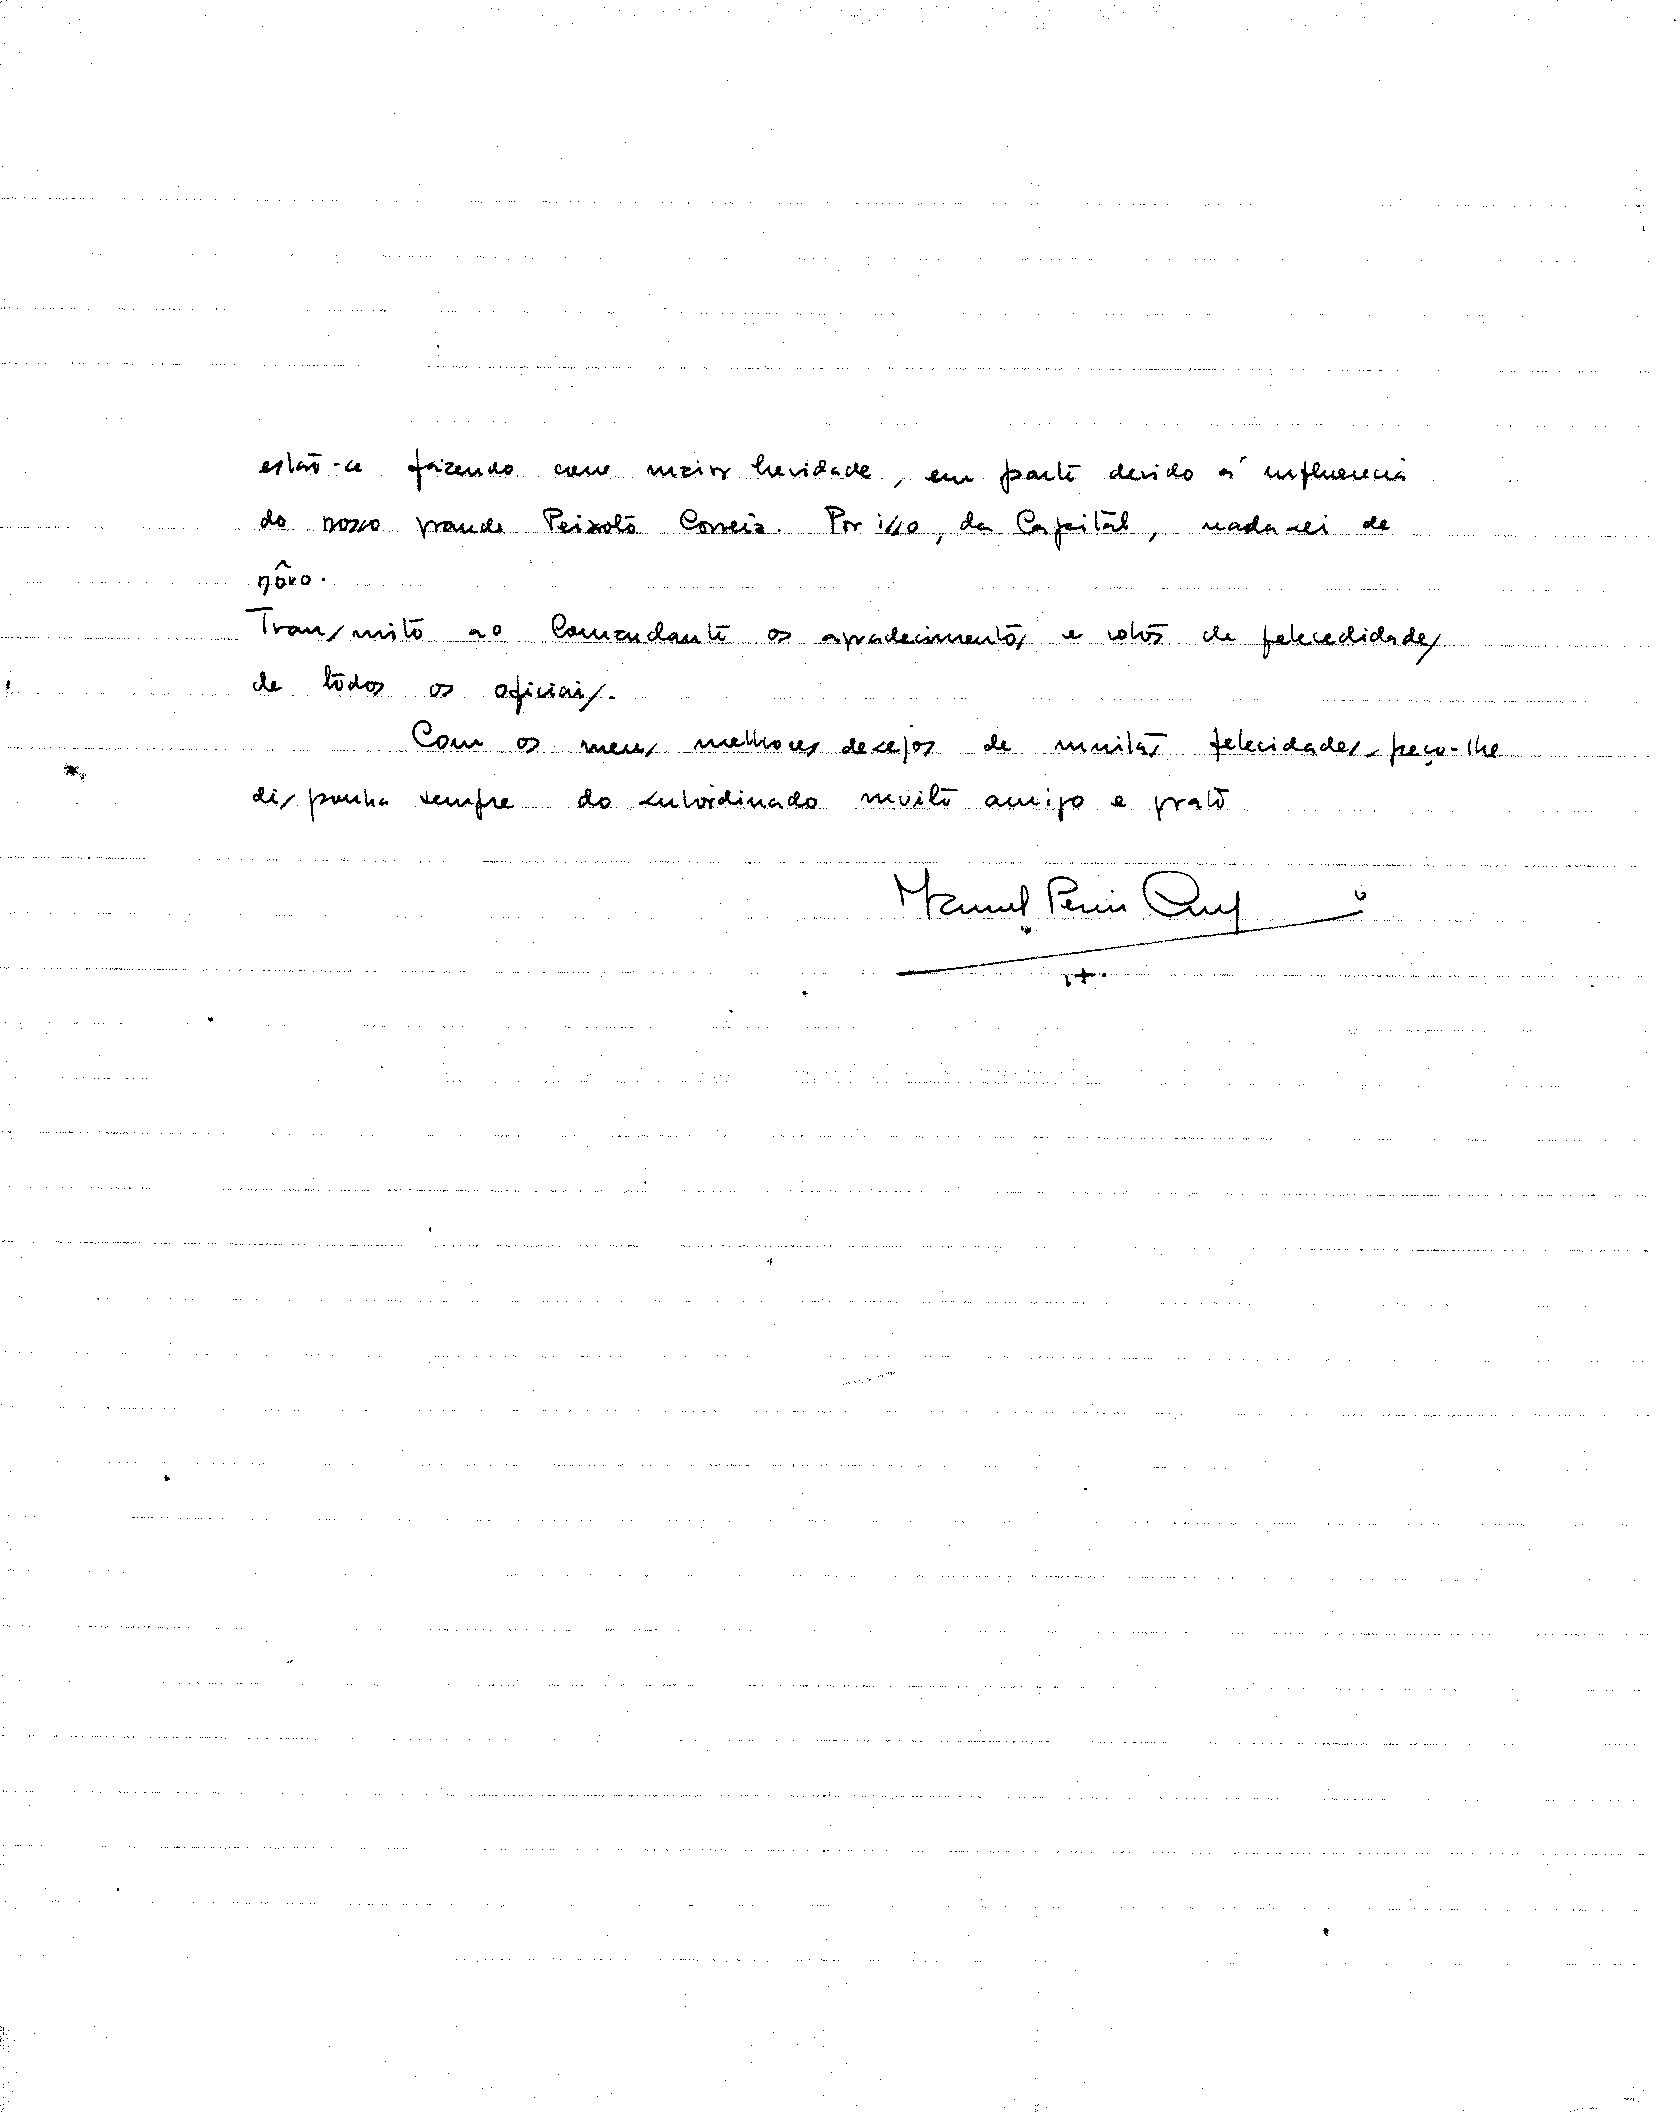 estão-se fazendo com maior brevidade, em parte devido á influencia
do nosso grande Peixoto Correia. Por isso, da Capital, nada sei de
nôvo.
Transmito ao Comandante os agradecimentos e votos de felecedidades
de todos os oficiais.
Com os meus melhores desejos de muitas felecidades, peço-lhe
disponha sempre do subordinado muito amigo e grato
Manuel